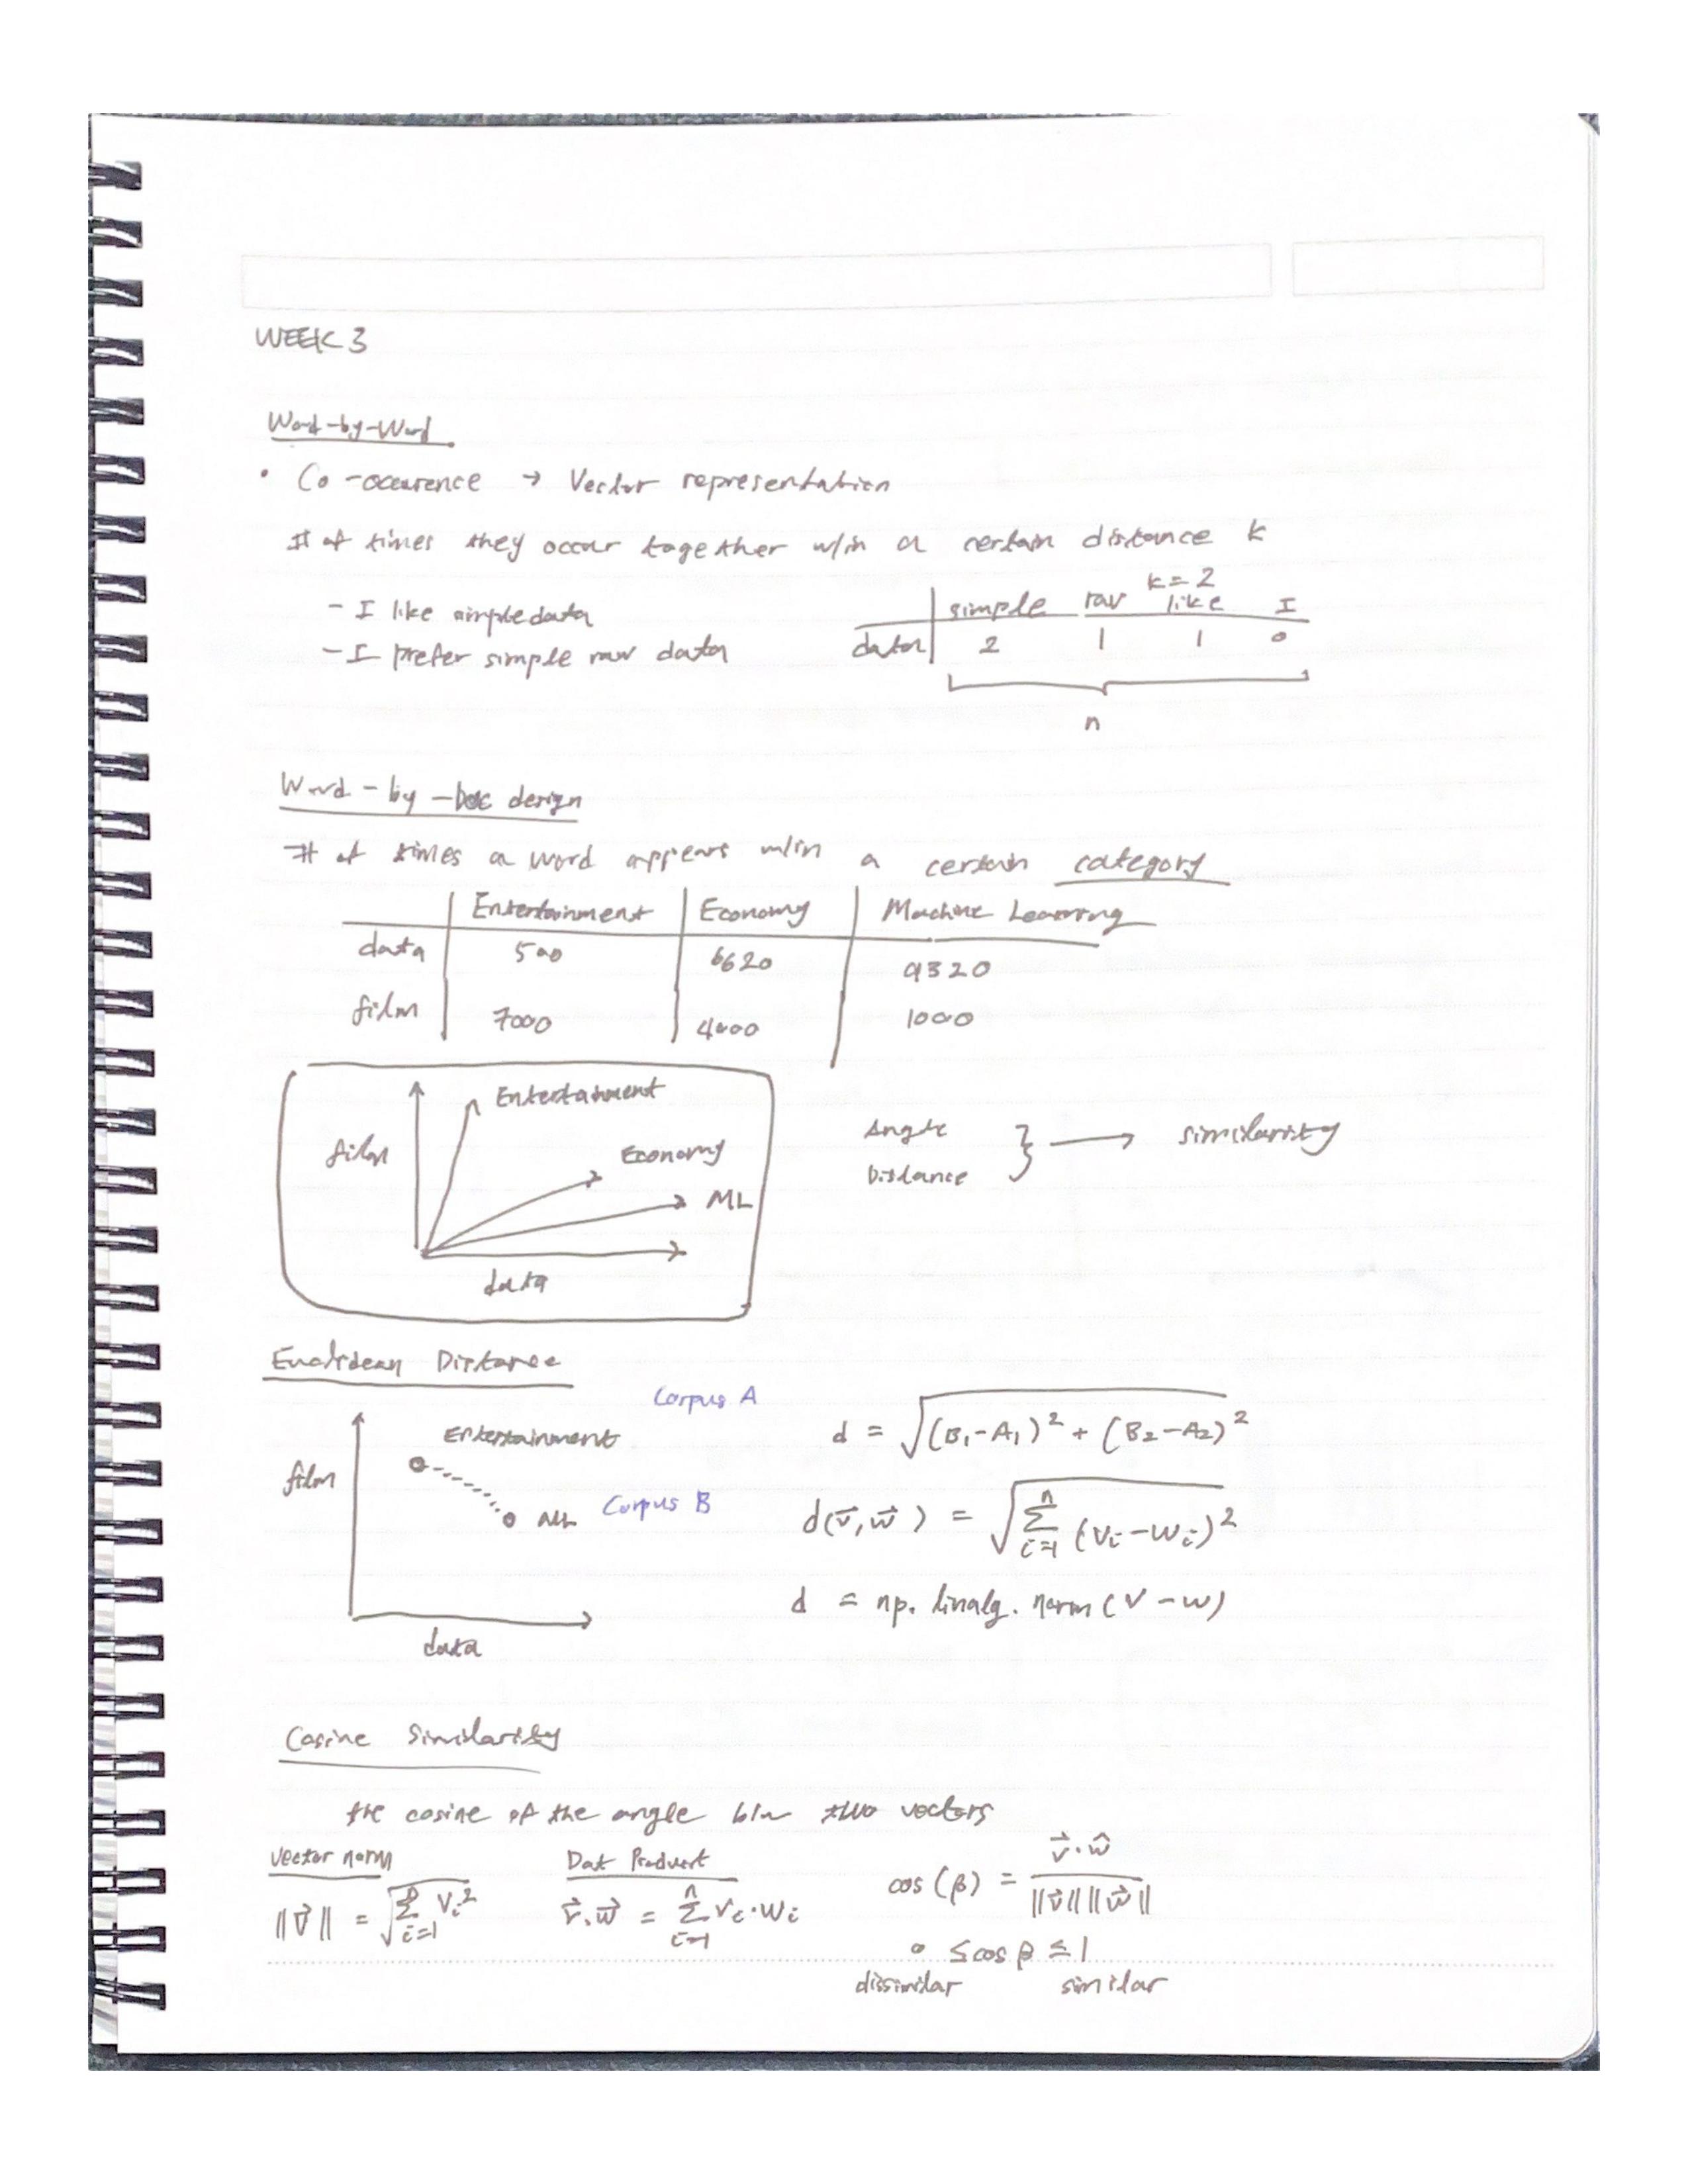 WEEK 3
Word-by-Word
• Co-occurence → Vector representation
# of times they occur together w/in a certain distance k
- I like simple data
- I prefer simple raw data
k=2
simple raw like I
data 2 1 1 0
n
Word-by-Doc design
# of times a word appears w/in a certain category
Entertainment Economy Machine Learning
data 500 6620 9320
film 7000 4000 1000
film
Entertainment
Economy
ML
data
Angle
Distance
} → similarity
Euclidean Distance
Corpus A
Entertainment
film
Corpus B
ML
data
d = √(B₁-A₁)² + (B₂-A₂)²
d(v⃗,w⃗) = √∑ⁿᵢ₌₁ (vᵢ-wᵢ)²
d = np.linalg.norm(v-w)
Cosine Similarity
the cosine of the angle b/w two vectors
Vector norm
||v⃗|| = √∑ⁿᵢ₌₁ vᵢ²
Dot Product
v⃗.w⃗ = ∑ⁿᵢ₌₁ vᵢ.wᵢ
cos(β) = v⃗.ŵ / ||v⃗|| ||w⃗||
0 ≤ cos β ≤ 1
dissimilar similar